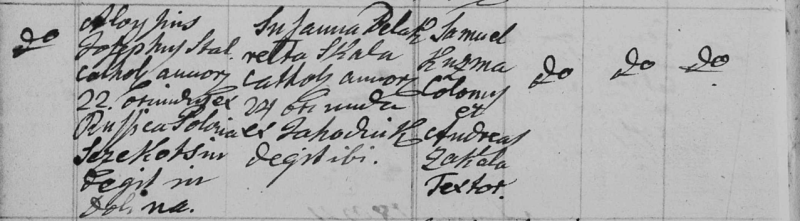 do
Aloysius
Josephus Stal
cathol. annor.
22. oriundus ex
Russica Polonia
Szekotsin
Degit in
Dolina.
Susanna Belak
relta Skala
cathol. annor
24 oriunda
ex Jahodnik
degit ibi.
Samuel
Kuzma
Colonus
et
Andreas
Zakala
Textor.
do do do